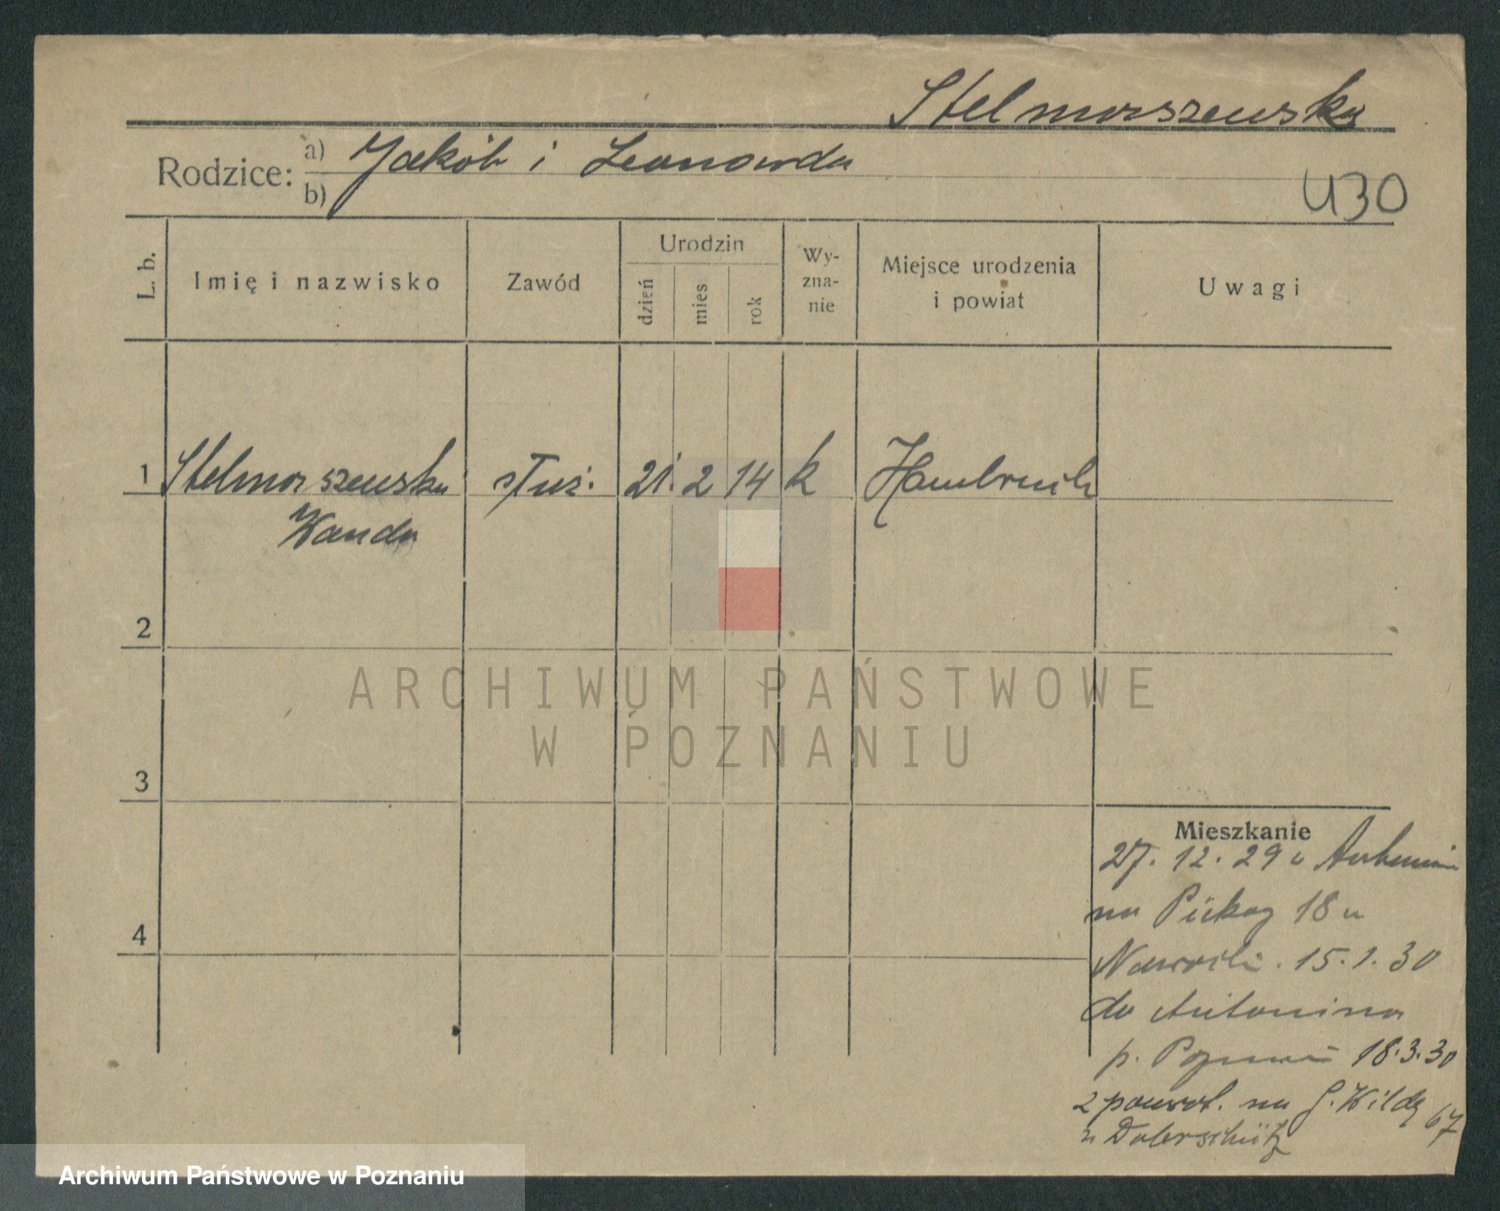 Stelmaszewska
Rodzice: a) Jakób i Leonarda
b)
U30
L. b. Imię i nazwisko Zawód Urodzin dzień mies rok Wy-zna-nie Miejsce urodzenia i powiat Uwagi
1 Stelmaszewska służ. 21. 2 14 k
Wanda
2
ARCHIWUM PAŃSTWOWE
W POZNANIU
3
Mieszkanie
27. 12. 29 z
na 18 u
15.1.30
do Antonina
p. 18.3.30
z powrot. na G. Wildę 67
u Doberschütz
4
Archiwum Państwowe w Poznaniu